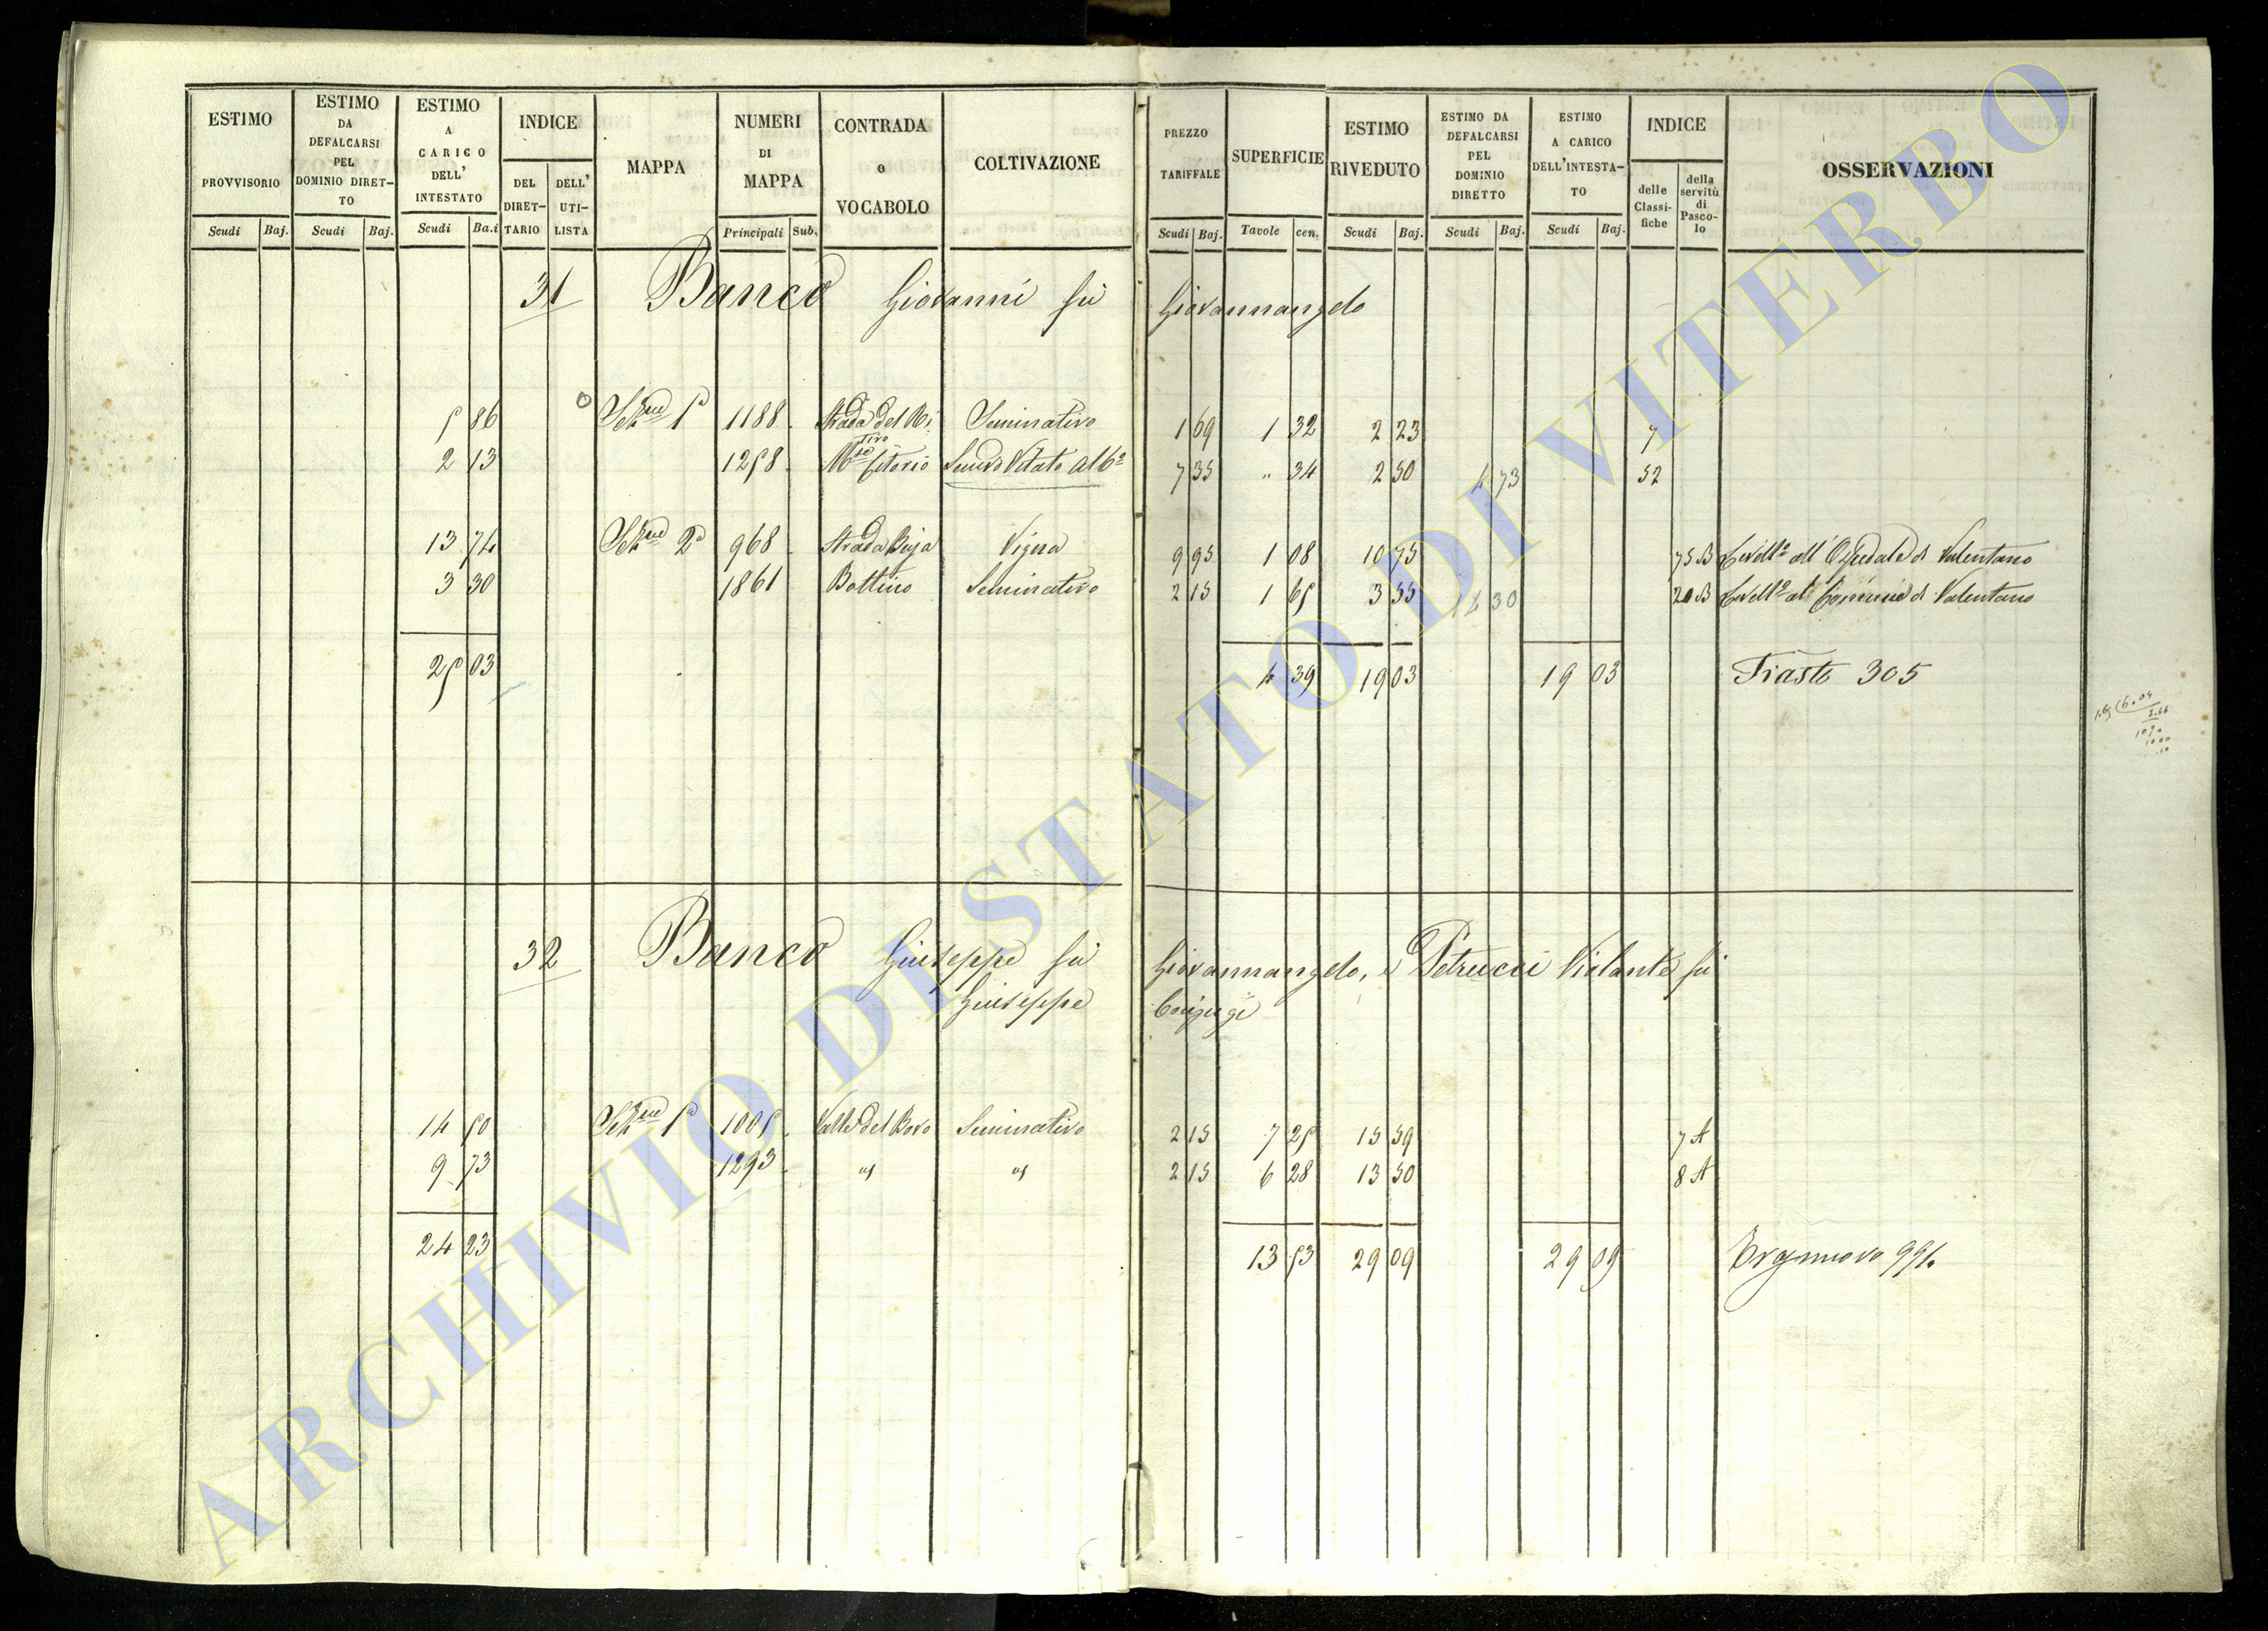 ESTIMO PROVVISORIO Scudi Baj.
ESTIMO DA DEFALCARSI PEL DOMINIO DIRET-TO Scudi Baj.
ESTIMO A CARICO DELL' INTESTATO Scudi Ba.i
INDICE DEL DIRET-TARIO DELL' UTI-LISTA
MAPPA
NUMERI DI MAPPA Principali Sub.
CONTRADA o VOCABOLO
COLTIVAZIONE
PREZZO TARIFFALE Scudi Baj.
SUPERFICIE Tavole cen.
ESTIMO RIVEDUTO Scudi Baj.
ESTIMO DA DEFALCARSI PEL DOMINIO DIRETTO Scudi Baj.
ESTIMO A CARICO DELL'INTESTA-TO Scudi Baj.
INDICE delle Classi-fiche della servitù di Pasco-lo
OSSERVAZIONI
31 Banco Giovanni fù Giovannangelo
5 86 Sezne 1a 1188 Strada del Ri:tiro Seminativo 1 69 1 32 2 23 7
2 13 1258 Mte Seminvo Vitato Alb° 7 35 " 34 2 50 1 73 52
13 74 Sezne 2a 968 Strada Buja Vigna 9 95 1 08 10 75 75 B Livello all Ospedale di Valentano
3 30 1861 Bottino Seminativo 2 15 1 65 3 55 30 20 B Livello al Comune di Valentano
25 03 4 39 19 03 19 03 305
32 Banco Giuseppe fù Giovannangelo, e Petrucci Violante fù
Giuseppe Conjugi
14 50 Sezne 1a 1005 Valle del Bovo Seminativo 2 15 7 25 15 59 7 A
9 73 1293 " " 2 15 6 28 13 50 8 A
24 23 13 53 29 09 29 09 991.
ARCHIVIO DI STATO DI VITERBO